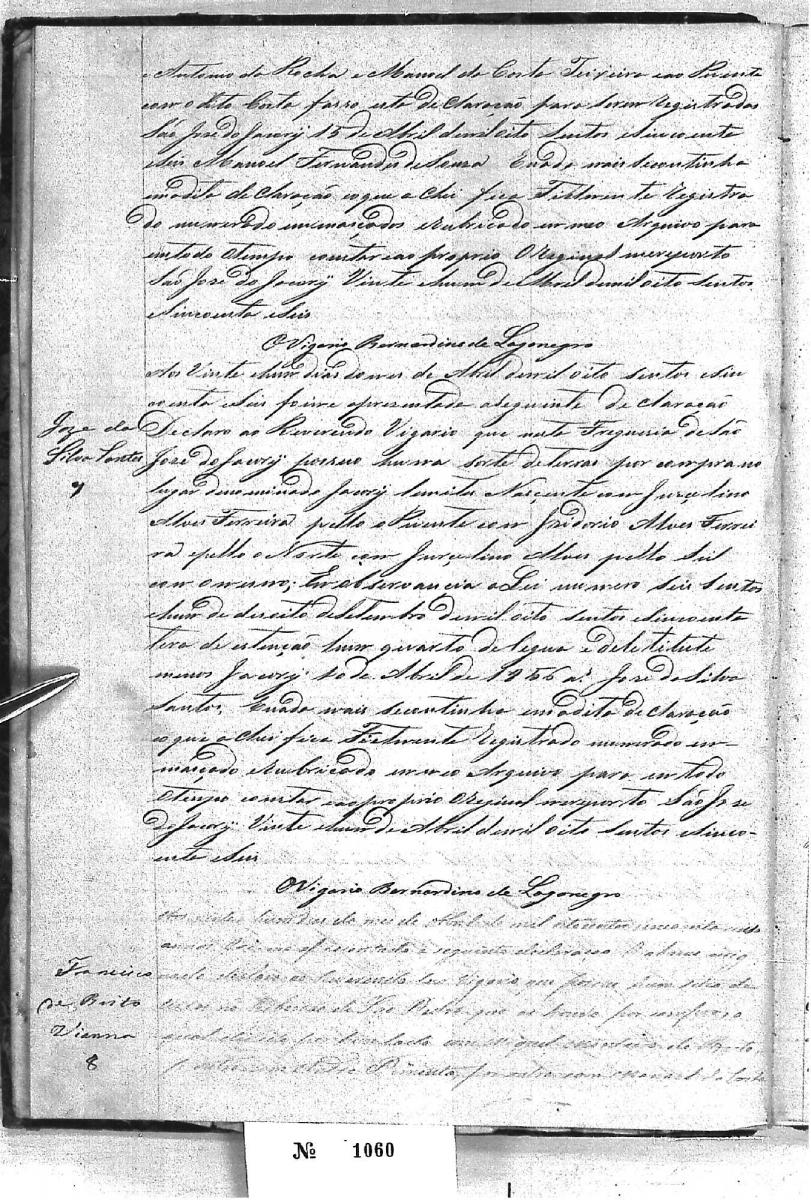 e Antonio da Rocha e Manoel da Costa Teixeira e ao Puente
com o dito Costa fasso esta de Claração para serem Registradas
São José do Jacory 15 de Abril de mil oito sentos e sincoente
e seis Manoel Fernandes de Souza E nada mais se continha
em a dita de Claração e o que a Chei fica Fielmente Registra
do numerado emmaçados e Rubricado em meo Arquivo para
em todo o tempo constar e ao proprio Original me reporto
São José do Jacory Vinte e hum de Abril de mil oito sentos
e sincoenta e seis
O Vigario Bernardino de Lagonegro
Aos Vinte e hum dias do mes de Abril de mil oito sentos e sin
coenta e seis foi me apresentada a seguinte de Claração
Joze da Silva Santos
7
Declaro ao Reverendo Vigario que nesta Freguesia de São
José do Jacory possuo huma sorte de terras por compra no
lugar denominado Jacory limita Nascente com Jusselino
Alves Ferreira pello o Puente com Izidorio Alves Ferrei
ra e pello o Norte com Jusselino Alves pello Sul
com o mesmo; Em observancia a Lei numero seis sentos
e hum de desoito de Setembro de mil oito sentos e sincoenta
tera de estenção hum quarto de legua e de
menos Jacory 10 de Abril de 1856 a. José da Silva
Santos, E nada mais se continha em a dita de Claração
e o que a Chei fica Fielmente Registrado numerado em
maçado e Rubricado em meo Arquivo para em todo
o tempo constar e ao proprio Original me reporto São Jose
do Jacory Vinte e hum de Abril de mil oito sentos e sinco-
enta e seis
O Vigario Bernardino de Lagonegro
Aos vinte e hum dias do mes de Abril de mil oitocentos sincoenta e seis
annos foi me apresentada a seguinte declaração
Francisco de Brito Vianna
8
declaro ao Reverendo Vigario, que possuo huma de
terras no Ribeirão de São Pedro, que as houve por compra o
qual por hum lado com Miguel de Brito,
Pimenta, por outro com Manoel da Costa
Nº 1060